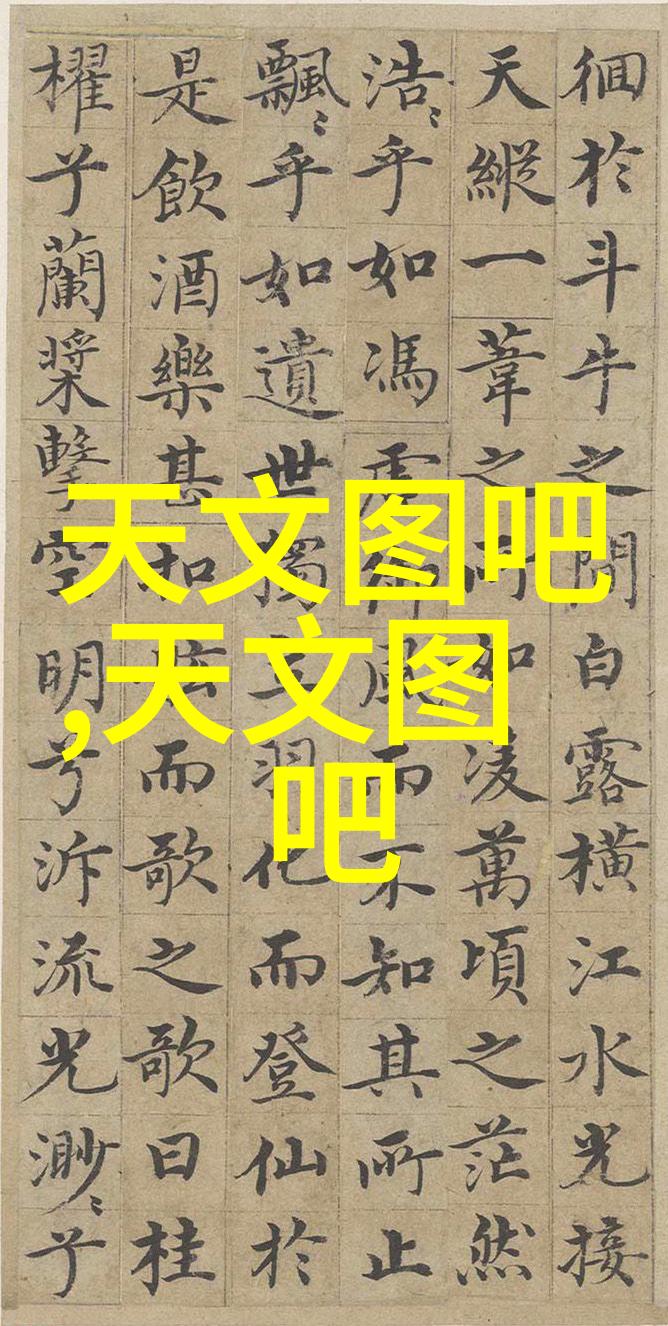 徊於斗牛之間白露橫江水光接
天縱一葦之所如凌萬頃之茫然
浩〻乎如馮虛御風而不知其所止
飄〻乎如遺世獨立羽化而登仙於
是飲酒樂甚扣舷而歌之歌曰桂
櫂兮蘭槳擊空明兮泝流光渺〻兮
天文图吧
,天文图
吧